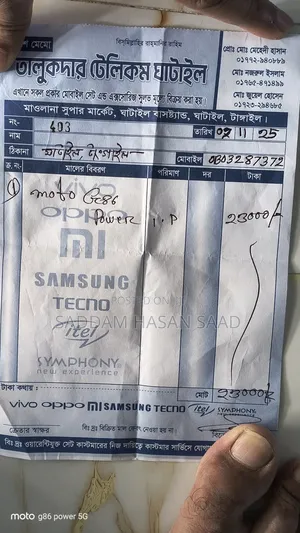 বিসমিল্লাহির রাহমানির রাহিম
তালুকদার টেলিকম ঘাটাইল
এখানে সকল প্রকার মোবাইল সেট এন্ড এক্সেসরিজ সুলভ মূল্যে বিক্রয় করা হয়।
প্রোঃ মোঃ মেহেদী হাসান
মোঃ নজরুল ইসলাম
মোঃ জুয়েল হোসেন
মাওলানা সুপার মার্কেট, ঘাটাইল বাসষ্ট্যান্ড, ঘাটাইল, টাঙ্গাইল।
নং- 403 তারিখ 02 11 25
ঠিকানা ঘাটাইল, টাংগাইল মোবাইল
ক্র. নং মালের বিবরণ পরিমাণ দর টাকা
moto G86 23000/
Power 1.P
vivo
oppo
mi
SAMSUNG
TECNO
itel
POSTED ON
SADDAM HASAN SAAD
SYMPHONY
new experience
টাকা কথায় : মোট 23000/
vivo oppo mi SAMSUNG TECNO itel SYMPHONY
ক্রেতার স্বাক্ষর বিঃ দ্রঃ বিক্রিত মাল ফেরৎ নেওয়া হয় না
বিঃ দ্রঃ ওয়ারেন্টিযুক্ত সেট কাস্টমারের নিজ দায়িত্বে কাস্টমার সার্ভিসে যোগা
moto g86 power 5G